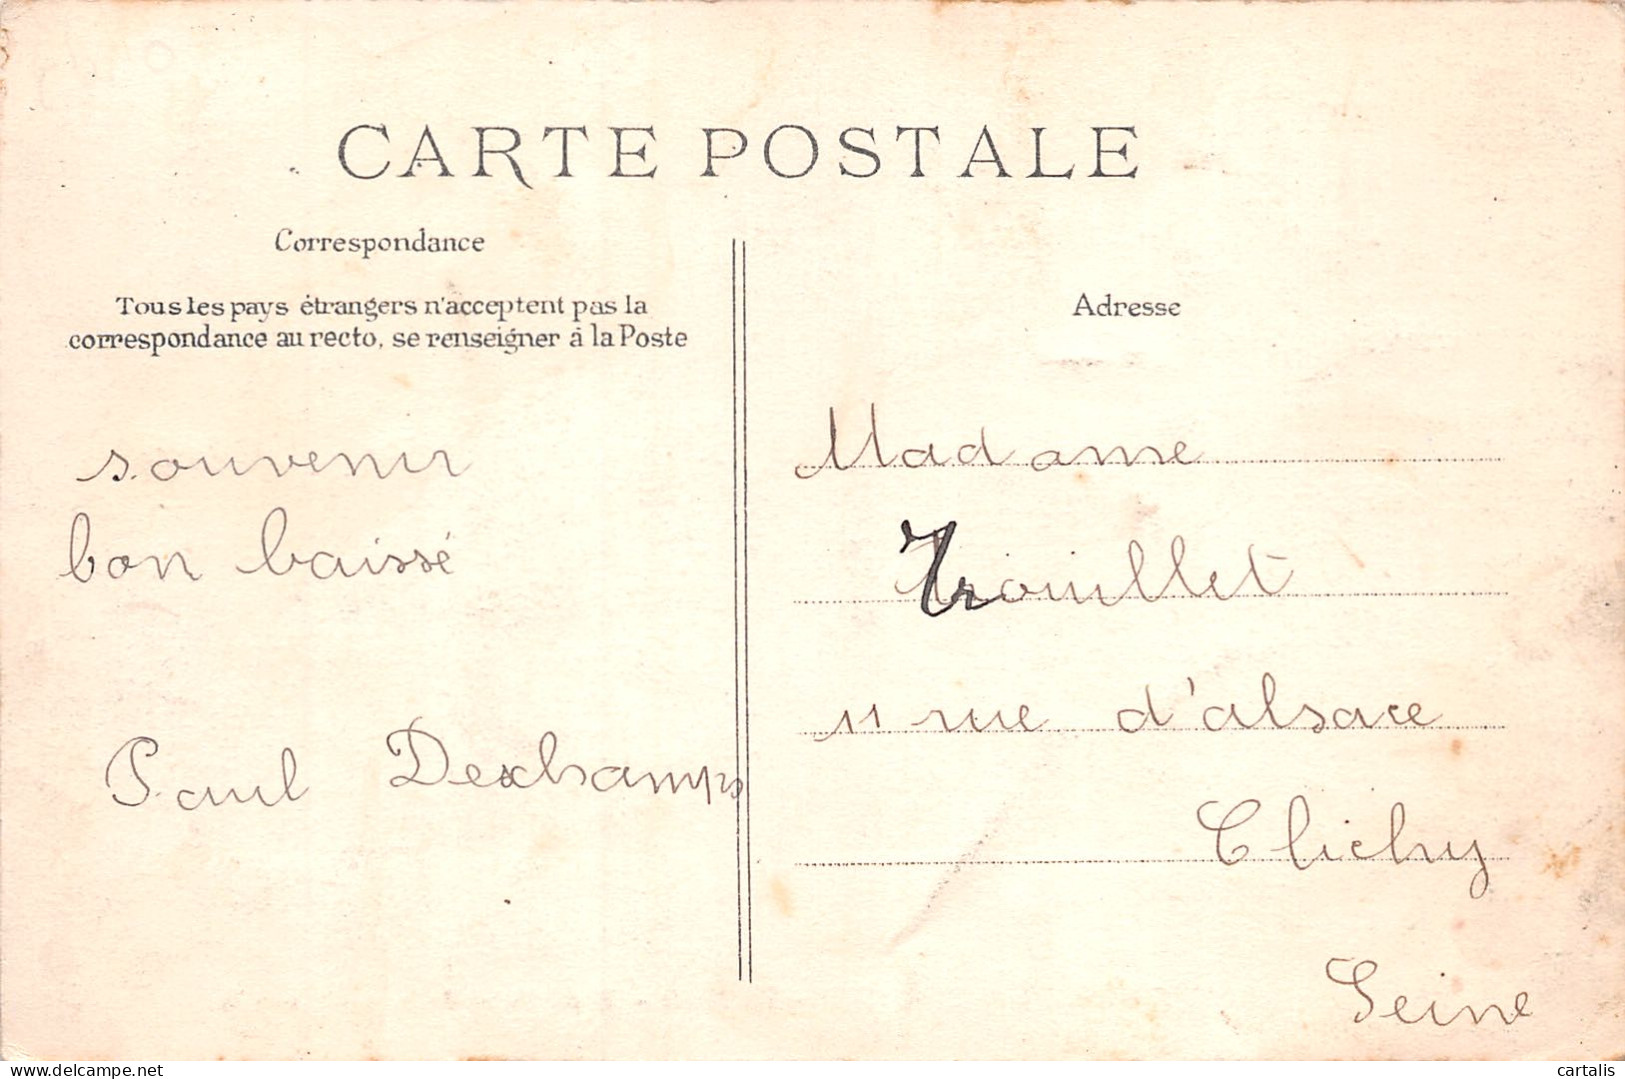 CARTE POSTALE
Correspondance
Tous les pays étrangers n'acceptent pas la
correspondance au recto, se renseigner à la Poste
souvenir
bon baissé
Paul Deschamps
Adresse
Madame
Trouillet
11 rue d'alsace
Clichy
Seine
delcampe.net
cartalis